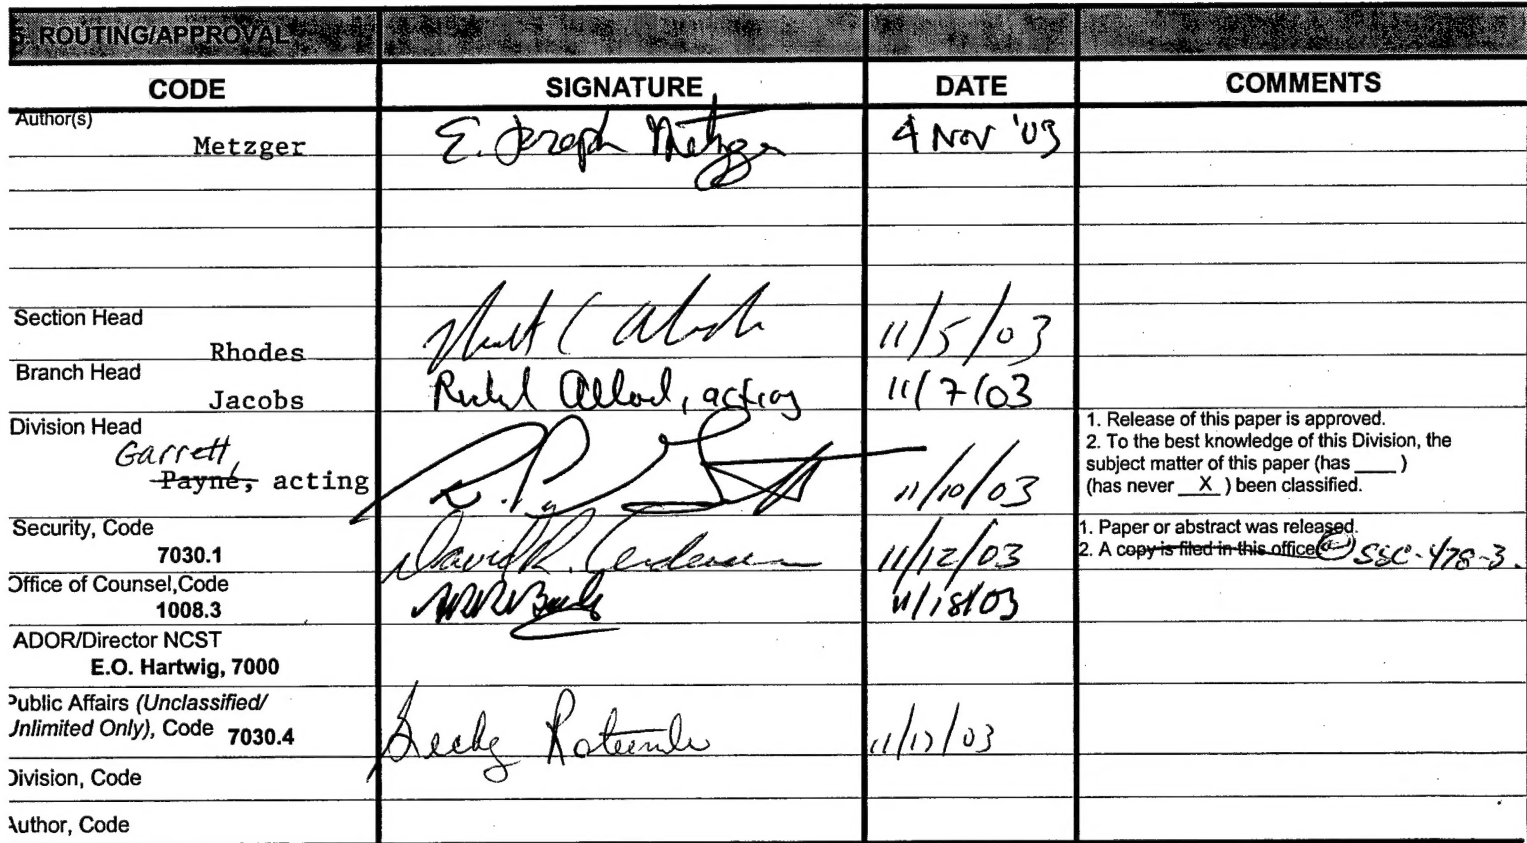 5. ROUTING/APPROVAL
CODE SIGNATURE DATE COMMENTS
Author(s)
Metzger E. Joseph Metzger 4 Nov '03
Section Head
Rhodes 11/5/03
Branch Head
Jacobs acting 11/7/03
Division Head
Garrett
Payne, acting 11/10/03
1. Release of this paper is approved.
2. To the best knowledge of this Division, the
subject matter of this paper (has ____ )
(has never __X__ ) been classified.
Security, Code
7030.1 David R. 11/12/03
1. Paper or abstract was released.
2. A copy is filed in this office SSC-478-3.
Office of Counsel,Code
1008.3 11/18/03
ADOR/Director NCST
E.O. Hartwig, 7000
Public Affairs (Unclassified/
Unlimited Only), Code 7030.4
Division, Code
Author, Code